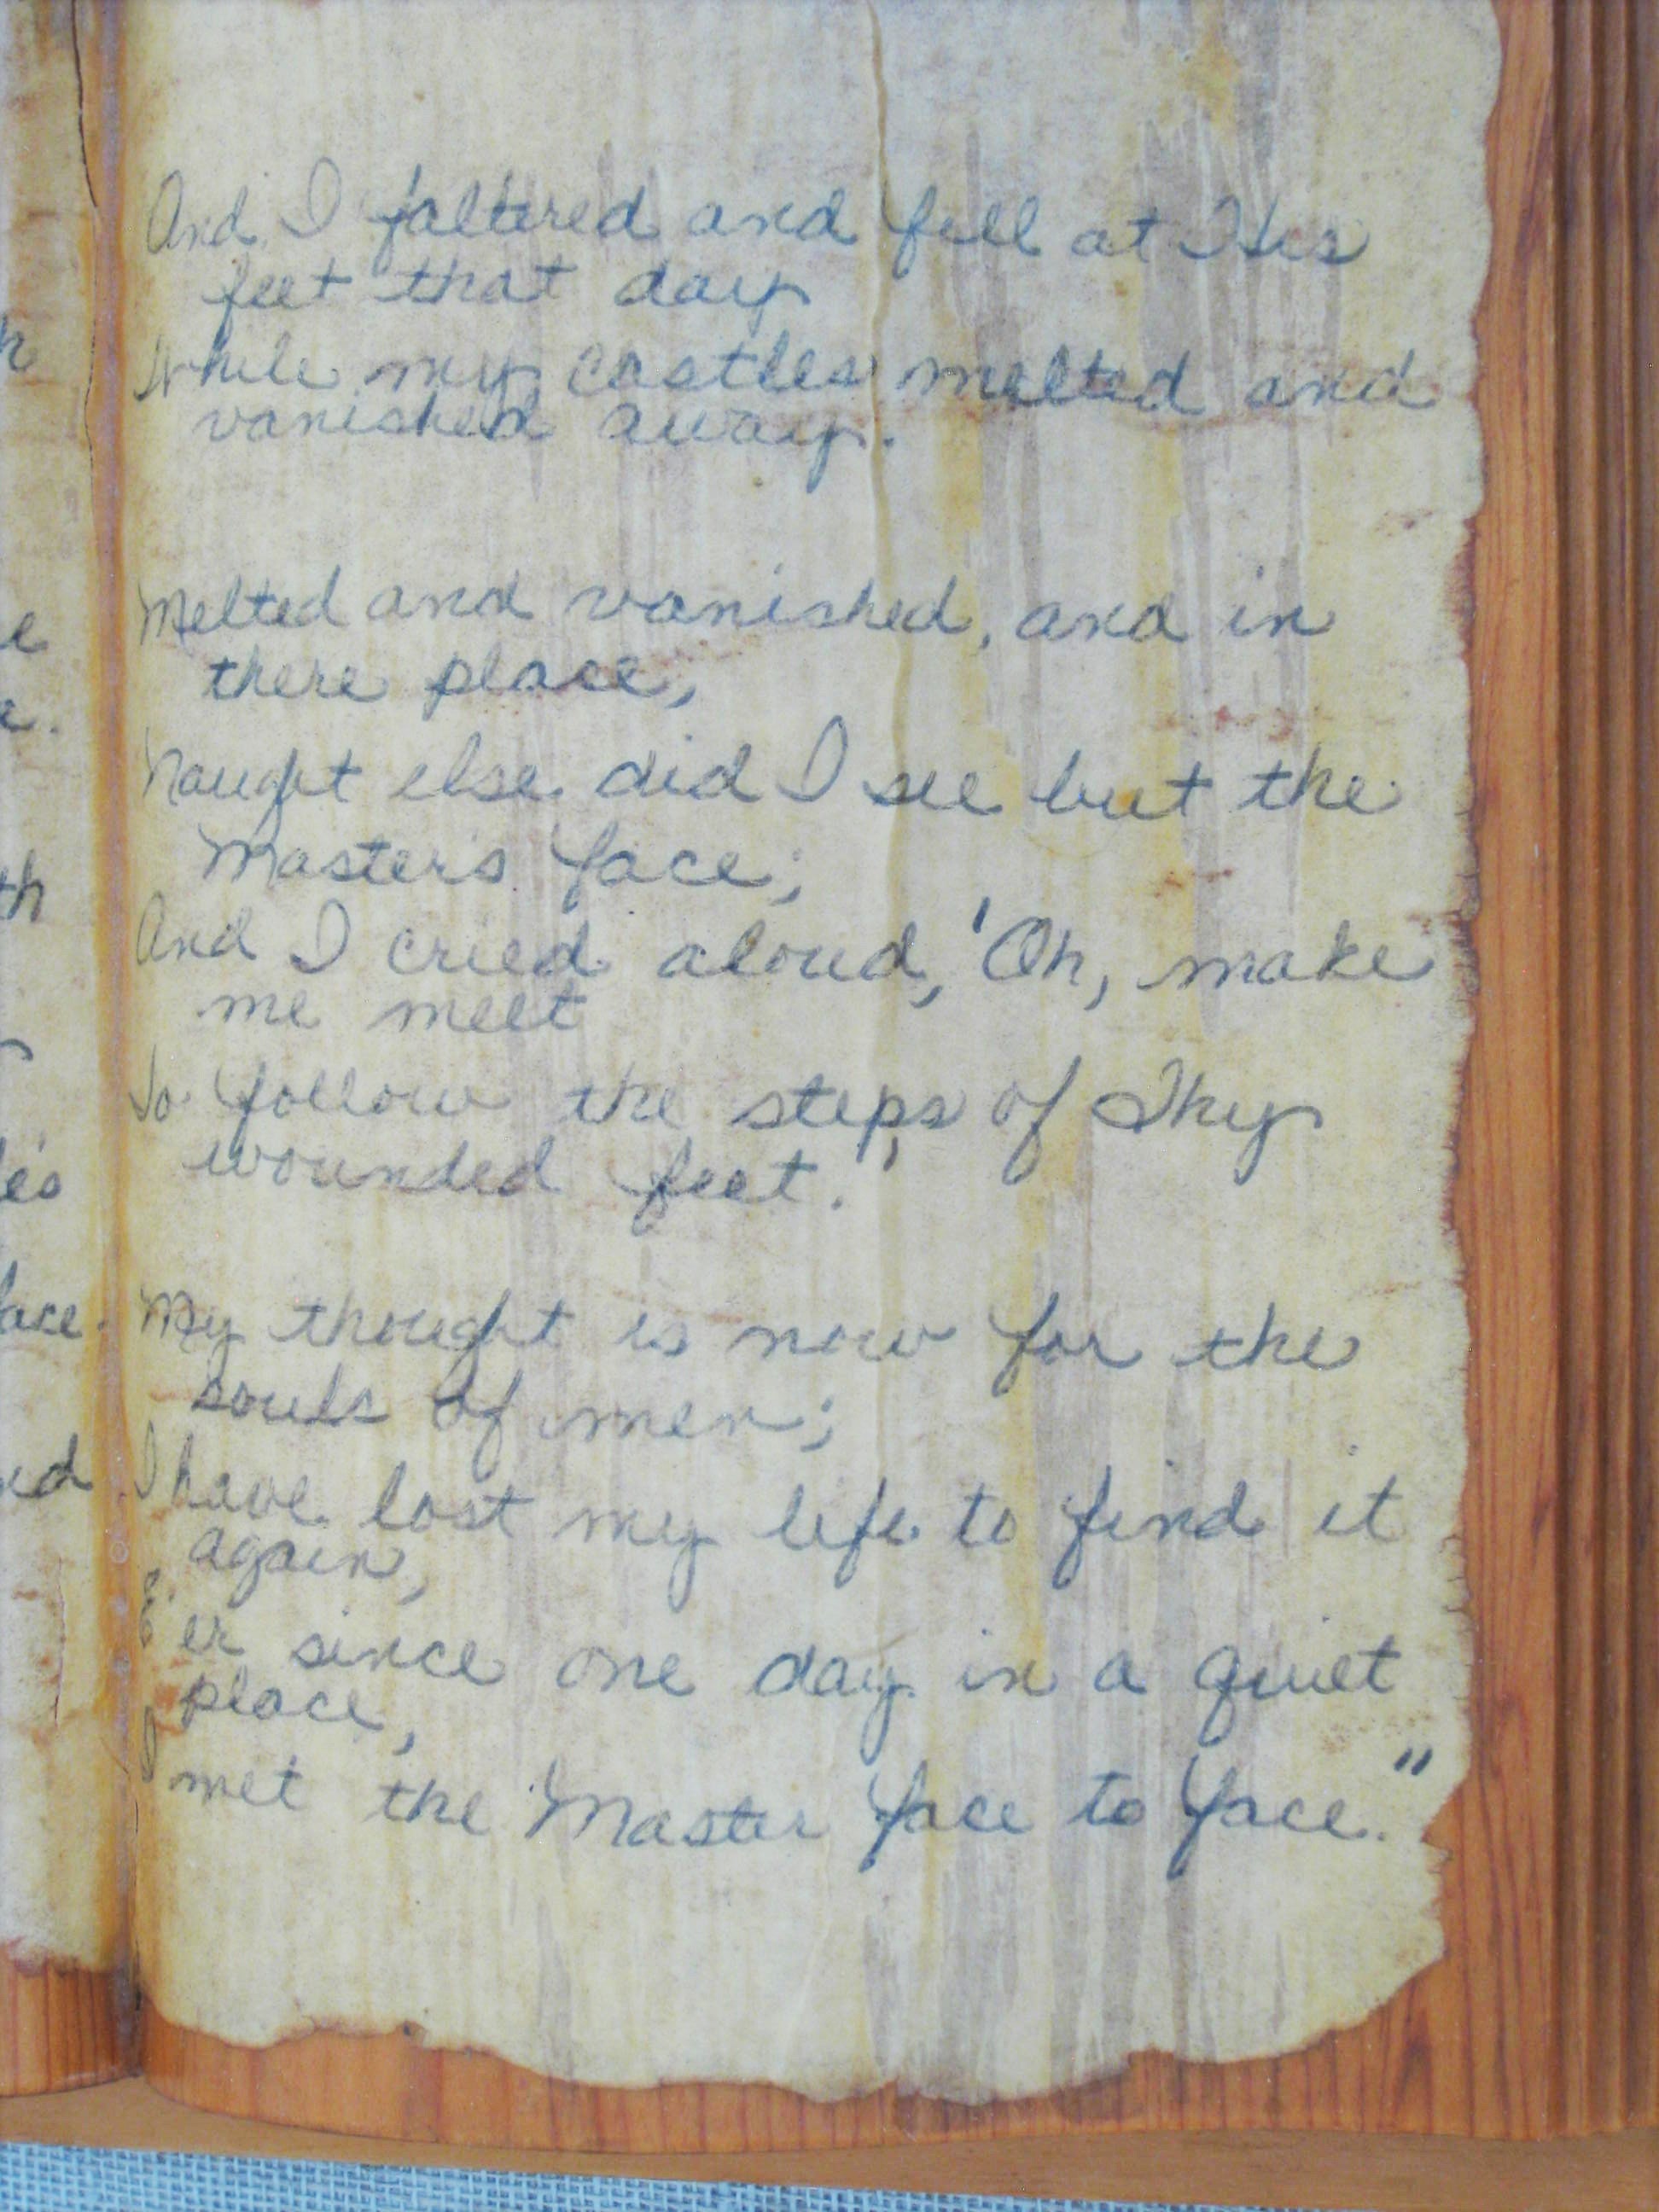 And I faltered and fell at His
feet that day
While my castles melted and
vanished away.
Melted and vanished, and in
there place,
Naught else did I see but the
Master's face;
And I cried aloud, 'Oh, make
me meet
To follow the steps of Thy
wounded feet.'
My thought is now for the
souls of men;
I have lost my life to find it
again,
E'er since one day in a quiet
place,
I met the Master face to face."